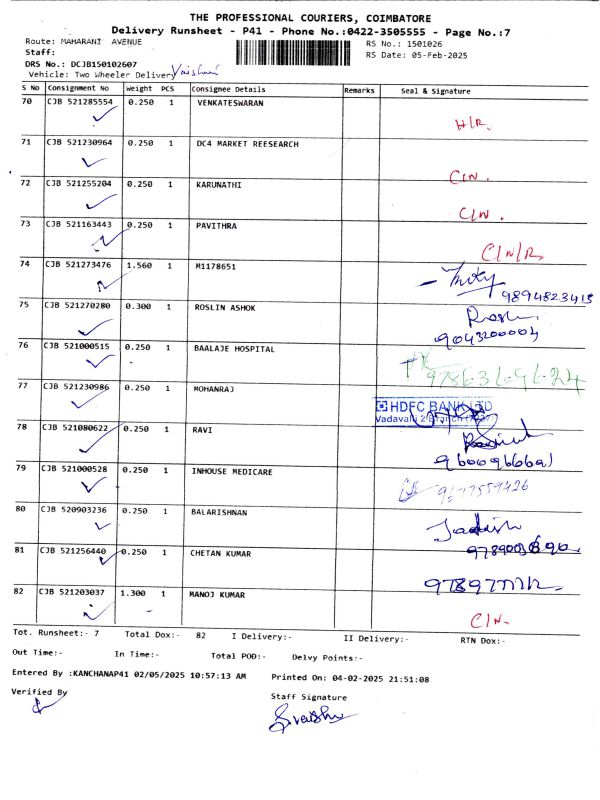 THE PROFESSIONAL COURIERS, COIMBATORE
Delivery Runsheet - P41 - Phone No.:0422-3505555 - Page No.:7
Route: MAHARANI AVENUE RS No.: 1501026
Staff: RS Date: 05-Feb-2025
DRS No.: DCJB150102607
Vehicle: Two Wheeler Delivery
S No Consignment No Weight PCS Consignee Details Remarks Seal & Signature
70 CJB 521285554 0.250 1 VENKATESWARAN H/R.
71 CJB 521230964 0.250 1 DC4 MARKET REESEARCH C/N.
72 CJB 521255204 0.250 1 KARUNATHI C/N.
73 CJB 521163443 0.250 1 PAVITHRA C/N/R.
74 CJB 521273476 1.560 1 M1178651 9894823413
75 CJB 521270280 0.300 1 ROSLIN ASHOK 9043200004
76 CJB 521000515 0.250 1 BAALAJE HOSPITAL
77 CJB 521230986 0.250 1 MOHANRAJ HDFC BANK LTD
Vadavalli
78 CJB 521080622 0.250 1 RAVI
79 CJB 521000528 0.250 1 INHOUSE MEDICARE 9677559426
80 CJB 520903236 0.250 1 BALARISHNAN
81 CJB 521256440 0.250 1 CHETAN KUMAR
82 CJB 521203037 1.300 1 MANOJ KUMAR C/N.
Tot. Runsheet:- 7 Total Dox:- 82 I Delivery:- II Delivery:- RTN Dox:-
Out Time:- In Time:- Total POD:- Delvy Points:-
Entered By :KANCHANAP41 02/05/2025 10:57:13 AM Printed On: 04-02-2025 21:51:08
Verified By Staff Signature